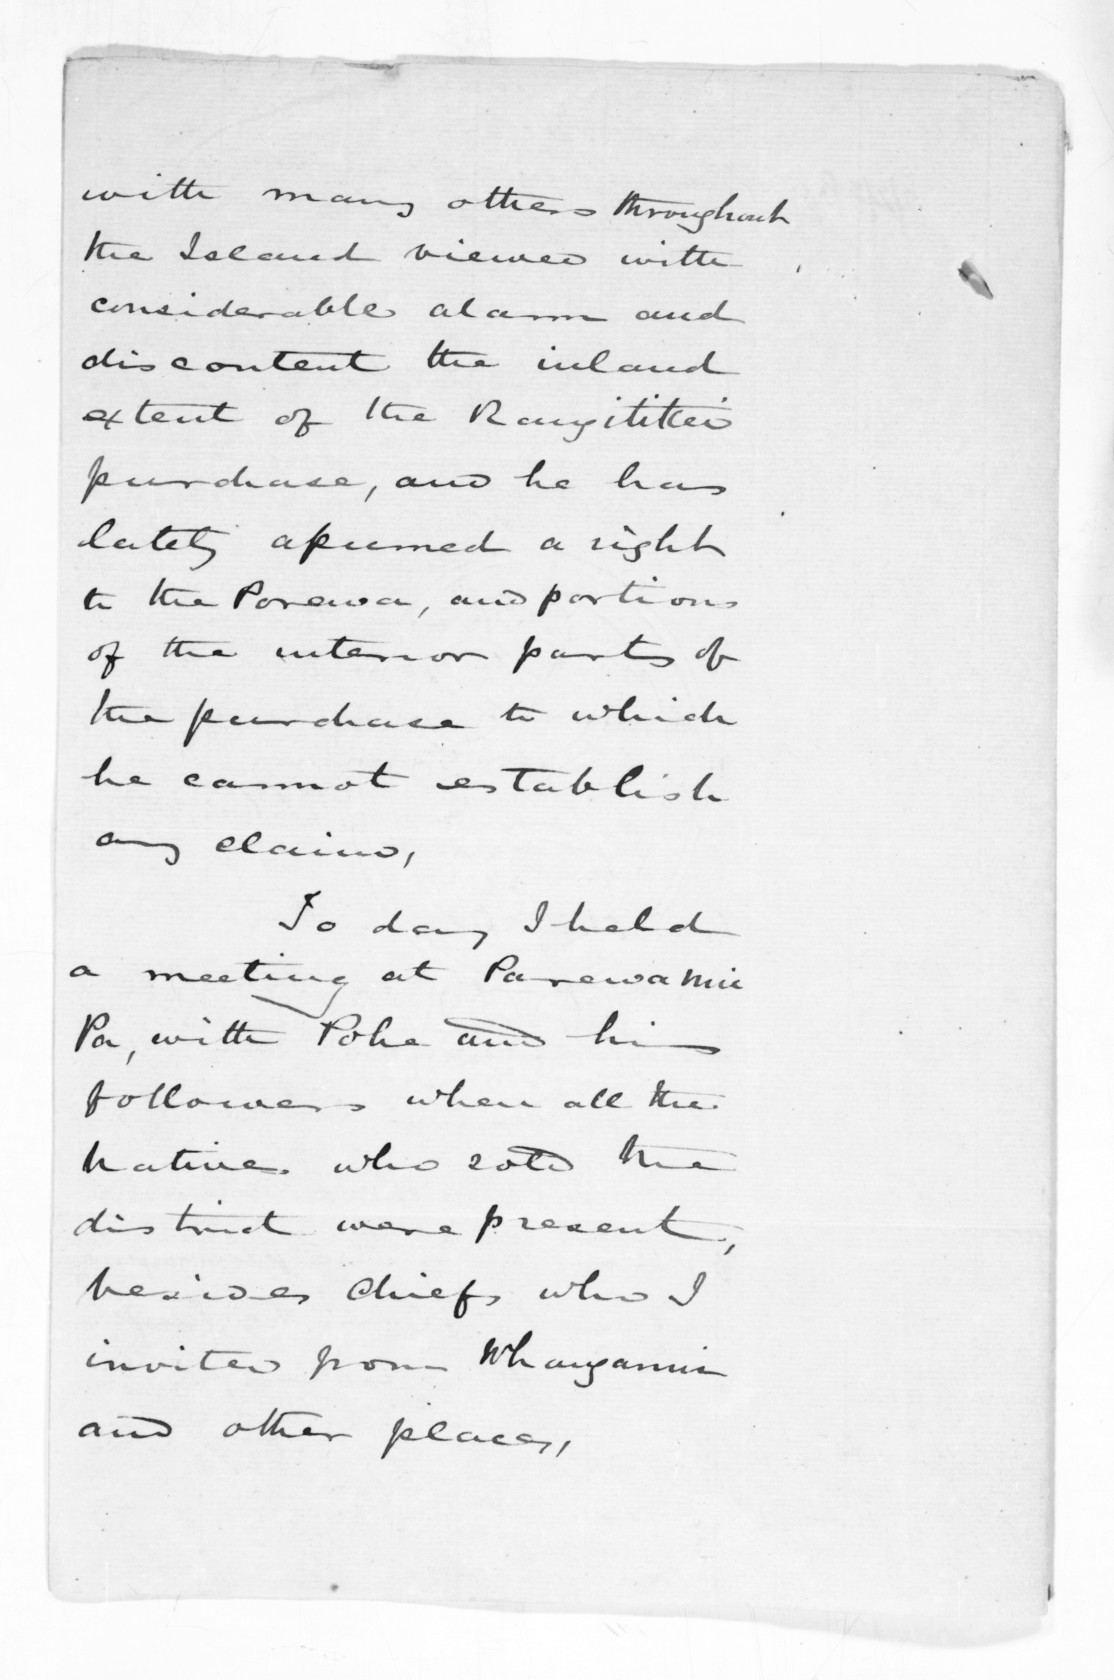 with many others throughout
the Island viewed with
considerable alarm and
discontent the inland
extent of the Rangitikei
purchase, and he has
lately assumed a right
to the Porewa, and portions
of the interior parts of
the purchase to which
he cannot establish
any claim,
To day I held
a meeting at Parewanui
Pa, with Pohe and his
followers when all the
Natives who sold the
district were present,
besides Chiefs who I
invited from Whanganui
and other places,